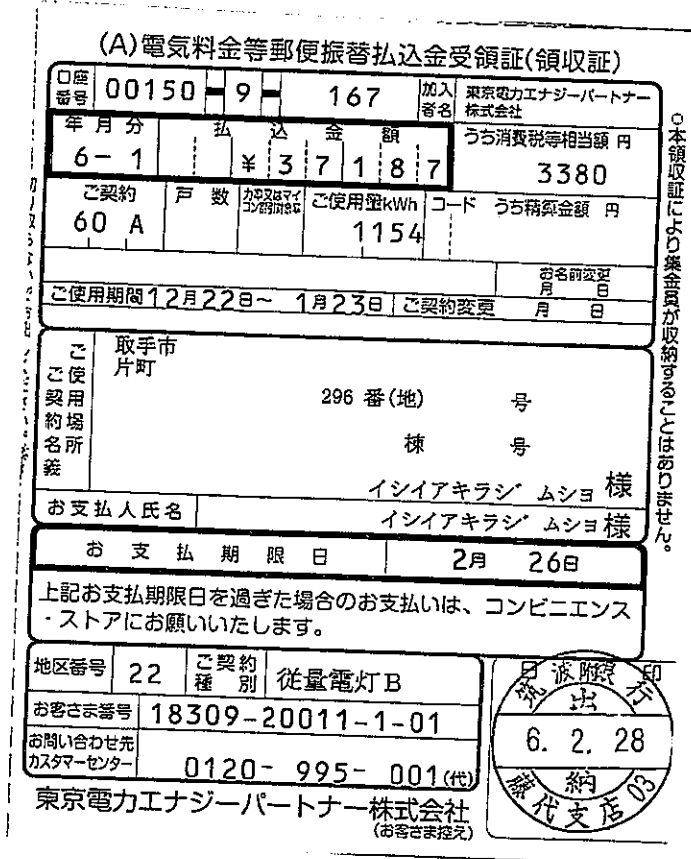 (A)電気料金等郵便振替払込金受領証(領収証)
口座番号 00150-9-167 加入者名 東京電力エナジーパートナー株式会社
年月分 払込金額 うち消費税等相当額 円
6-1 ¥37187 3380
ご契約 戸数 ご使用量kWh コード うち精算金額 円
60 A 1154
お名前変更 月 日
ご使用期間 12月22日~ 1月23日 ご契約変更 月 日
ご使用場所 ご契約名義
取手市
片町
296 番(地) 号
棟 号
イシイアキラジムショ 様
お支払人氏名 イシイアキラジムショ 様
お支払期限日 2月 26日
上記お支払期限日を過ぎた場合のお支払いは、コンビニエンス
・ストアにお願いいたします。
地区番号 22 ご契約種別 従量電灯B
お客さま番号 18309-20011-1-01
お問い合わせ先
カスタマーセンター 0120- 995- 001(代)
東京電力エナジーパートナー株式会社
(お客さま控え)
日 印
筑波銀行
出
6. 2. 28
納
藤代支店 03
○本領収証により集金員が収納することはありません。